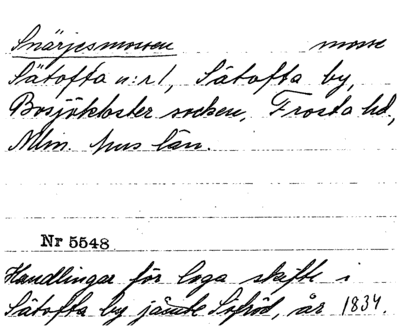 Snärjesmossen mosse
Sätofta n:r 1, Sätofta by,
Bosjökloster socken, Frosta hd,
Mlm. hus län.
Nr 5548
Handlingar för laga skifte i
Sätofta by jämte Sjöröd, år 1834.